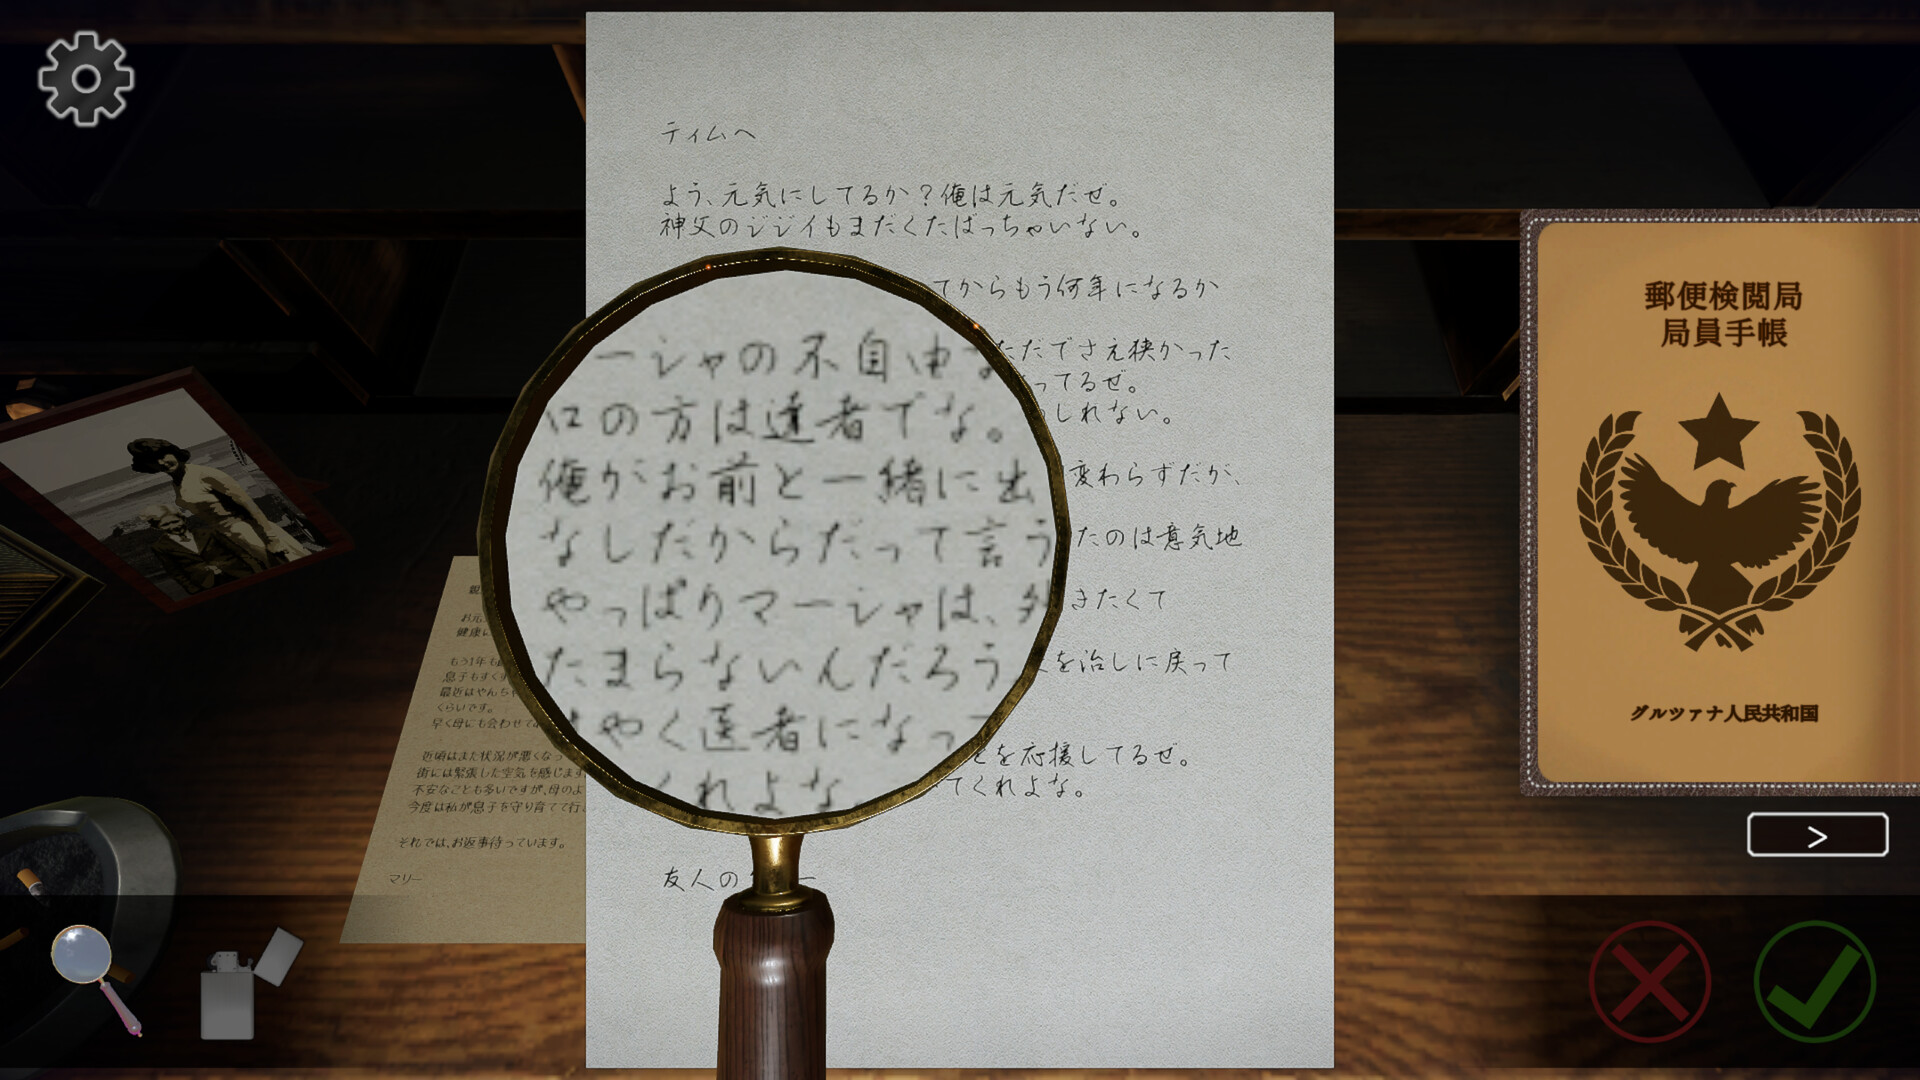 ティムへ
よう、元気にしてるか?俺は元気だぜ。
神父のジジイもまだくたばっちゃいない。
てからもう何年になるか
ただでさえ狭かった
ってるぜ。
しれない。
変わらずだが、
たのは意気地
きたくて
を治しに戻って
とを応援してるぜ。
てくれよな。
友人の
ーシャの不自由な
口の方は達者でな。
俺がお前と一緒に出
なしだからだって言う
やっぱりマーシャは、外
たまらないんだろう
はやく医者になっ
くれよな
お元
健康に
もう1年も
息子もすくす
最近はやんち
くらいです。
早く母にも会わせて
近頃はまた状況が悪くなっ
街には緊張した空気を感じます
不安なことも多いですが、母のよ
今度は私が息子を守り育てて行
それでは、お返事待っています。
マリー
郵便検閲局
局員手帳
グルツァナ人民共和国
>